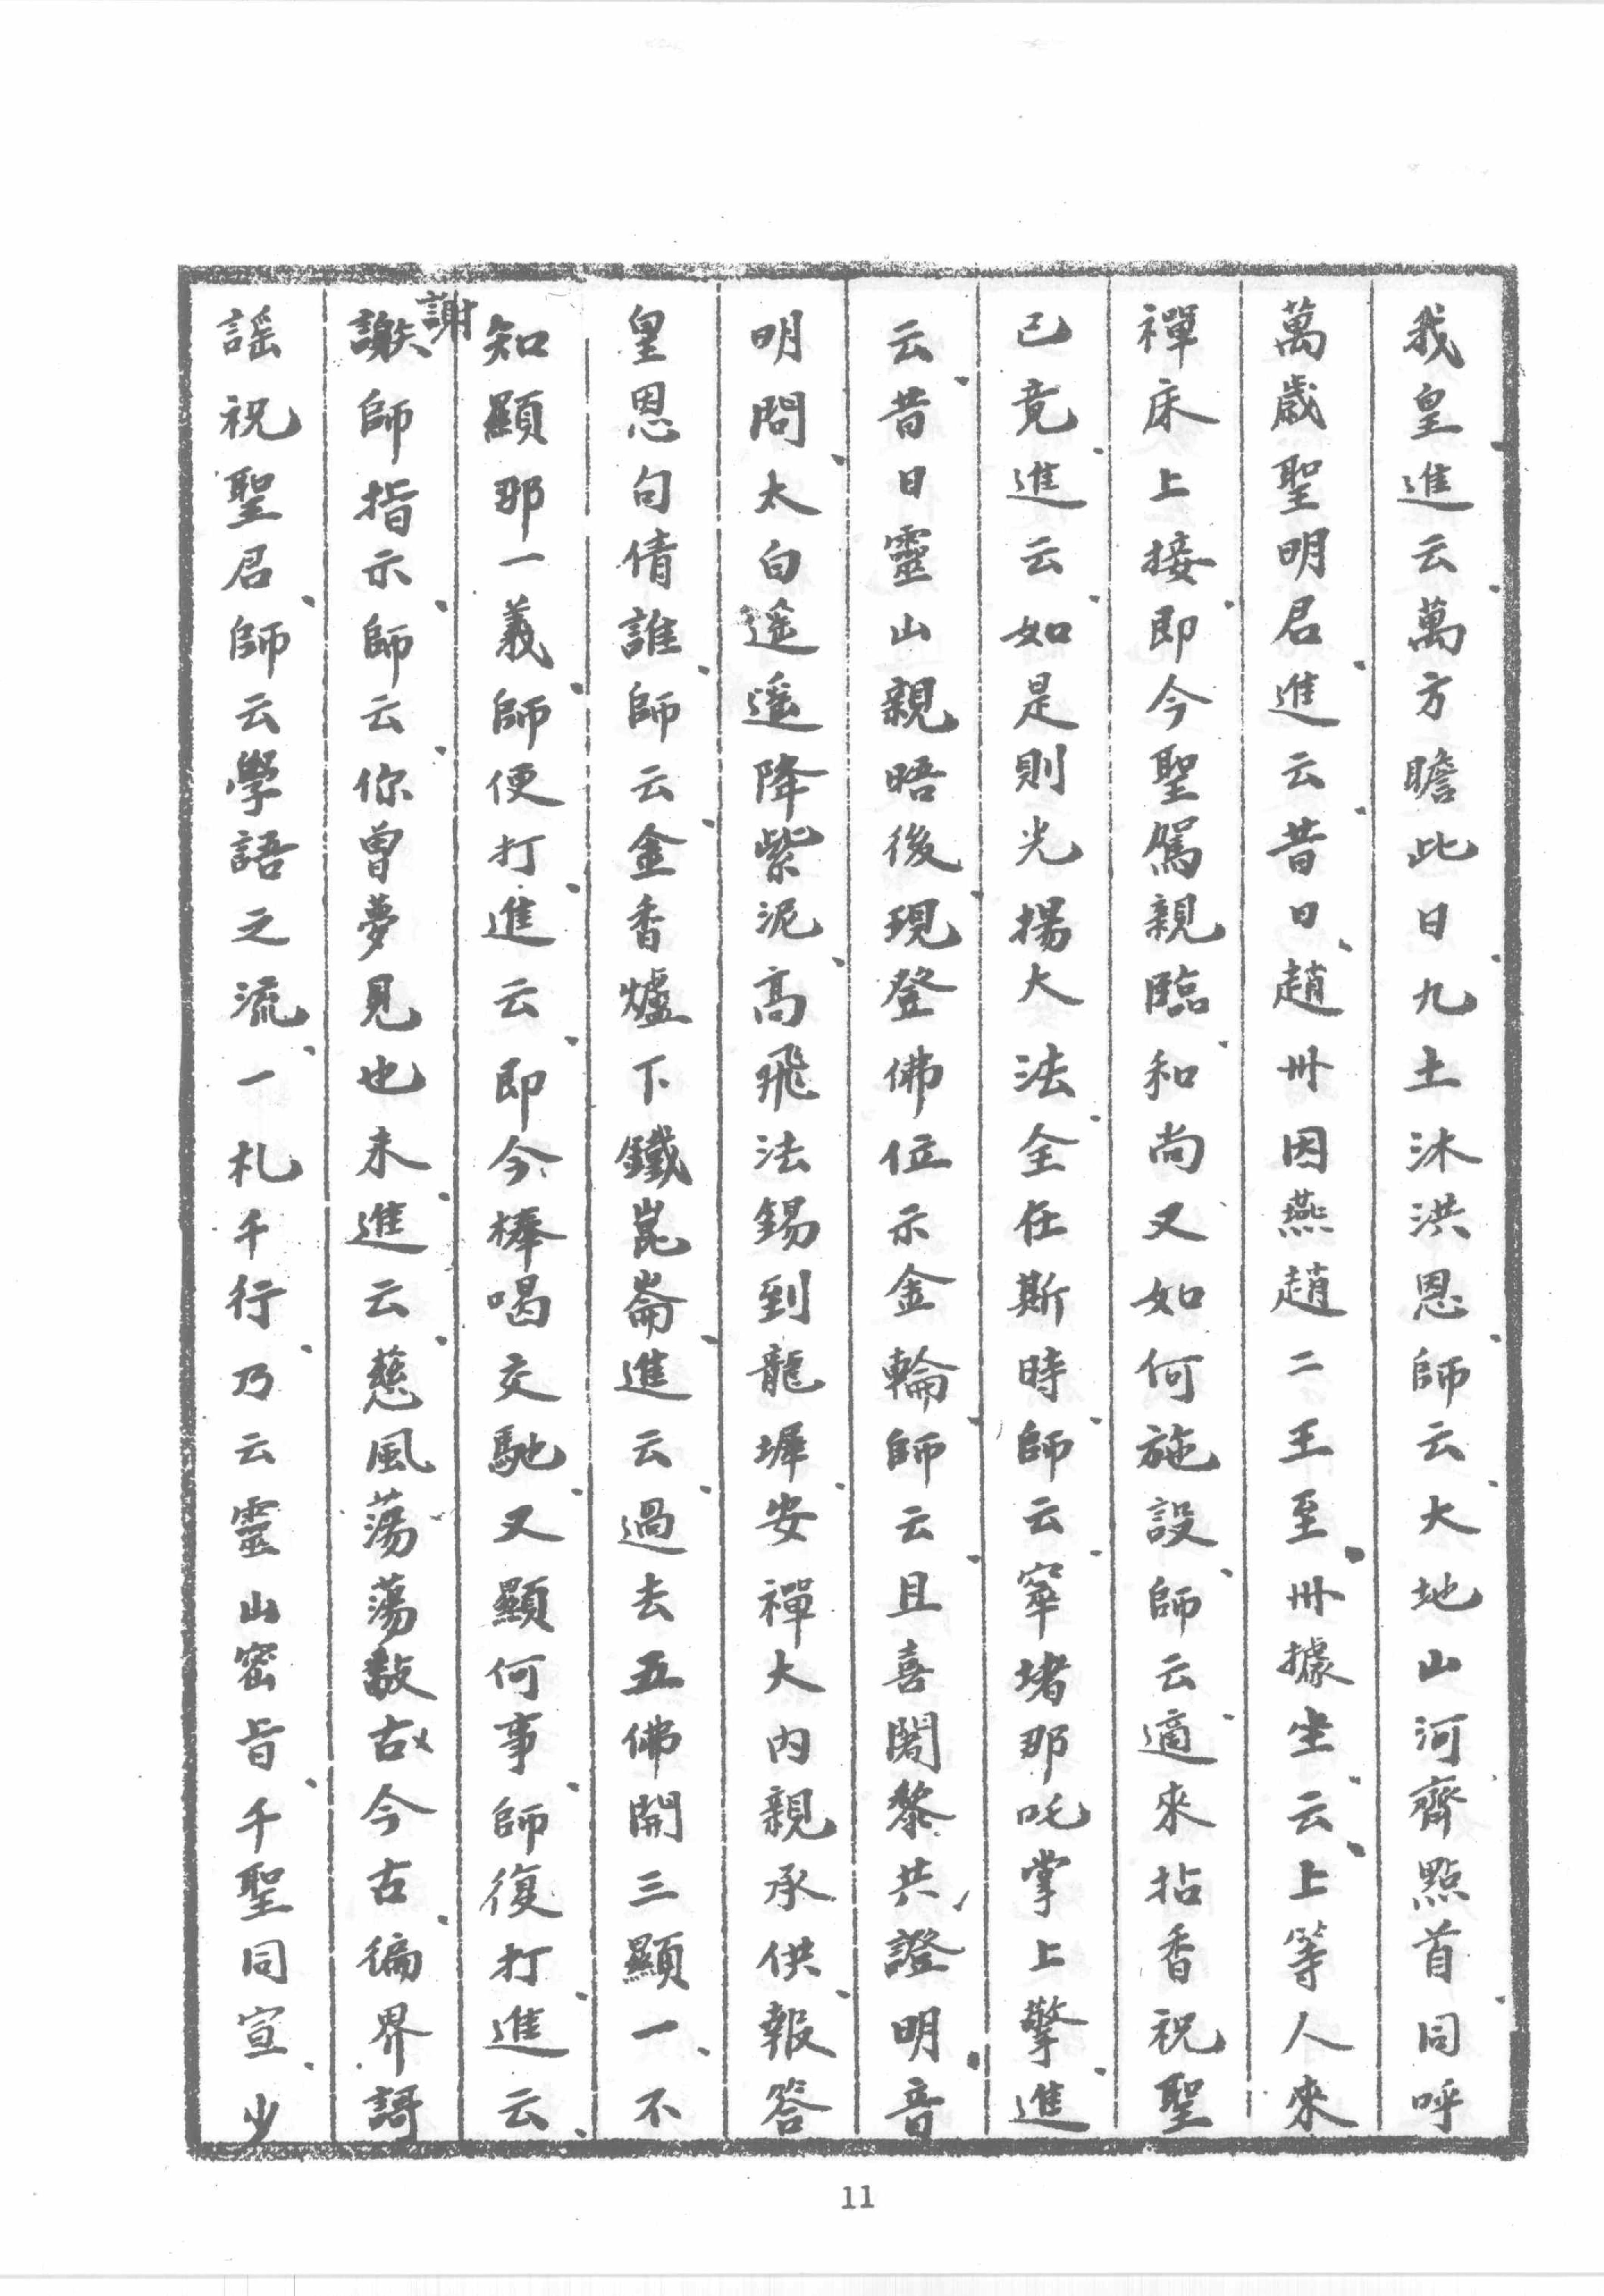 我皇進云萬方瞻此日九土沐洪恩師云大地山河齊點首同呼
萬歲聖明君進云昔日趙州因燕趙二王至州據坐云上等人來
禪床上接即今聖駕親臨和尚又如何施設師云適來拈香祝聖
已竟進云如是則光揚大法全在斯時師云窣堵那吒掌上擎進
云昔日靈山親晤後現登佛位示金輪師云且喜闍黎共證明音
明問太白遙遙降紫泥高飛法錫到龍墀安禪大內親承供報答
皇恩句倩誰師云金香爐下鐵崑崙進云過去五佛開三顯一不
知顯那一義師便打進云即今棒喝交馳又顯何事師復打進云
謝師指示師云你曾夢見也未進云慈風蕩蕩敷古今古徧界謌
謝
謠祝聖君師云學語之流一札千行乃云靈山密旨千聖同宣少
11